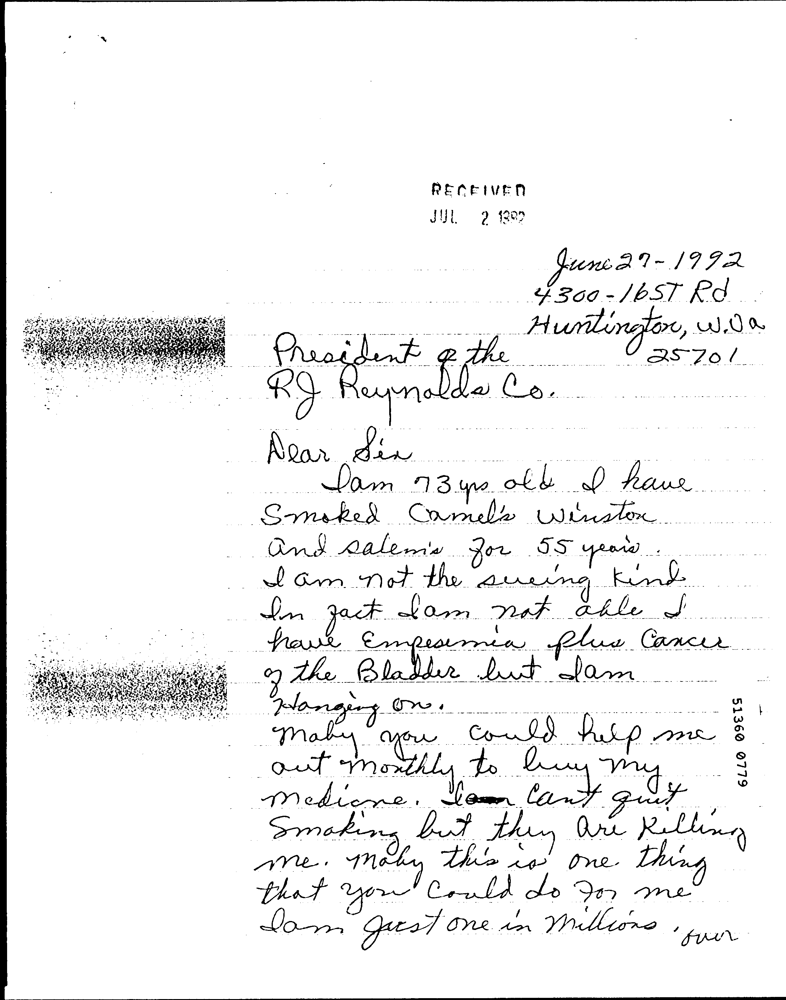 RECEIVED
JUL 2 1992
June 27-1992
4300-16ST Rd
Huntington, W.Va
25701
President of the
RJ Reynolds Co.
Dear Sir
I am 73 yrs old I have
Smoked Camel's Winston
and Salem's for 55 years.
I am not the sueing kind
In fact I am not able I
have Empesemia plus Cancer
of the Bladder but I am
Hanging on.
Maby you could help me
out monthly to buy my
medicne. I Cant quit
Smoking but they are Killing
me. Maby this is one thing
that you Could do For me
I am just one in Millions.
over
51360 0779